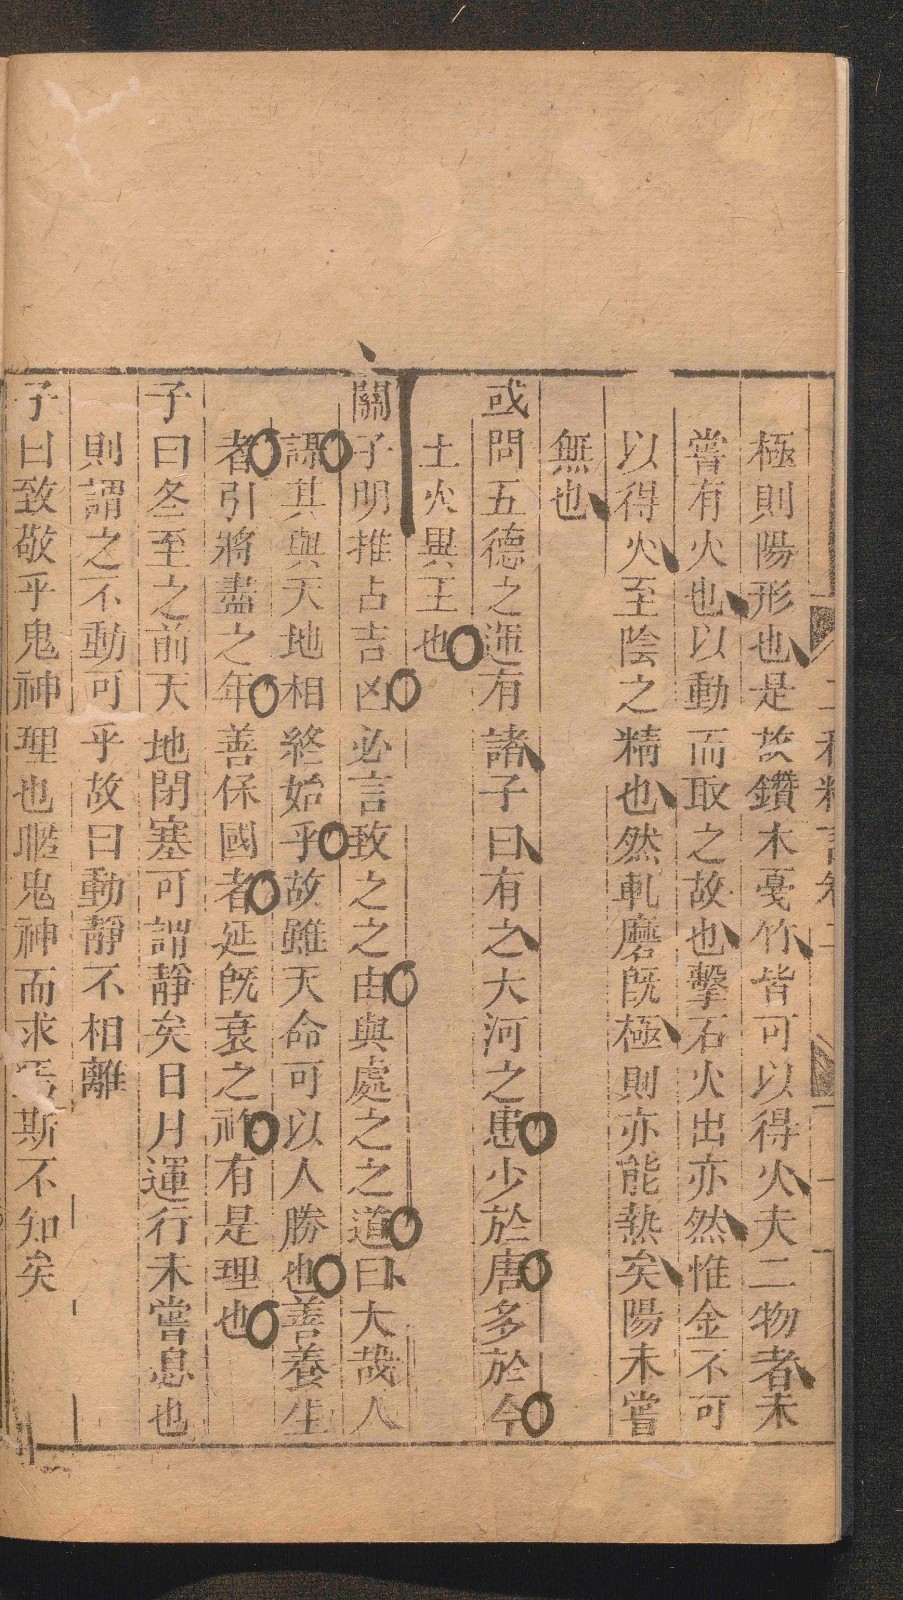 極則陽形也是故鑽木戞竹皆可以得火夫二物者未
嘗有火也以動而取之故也擊石火出亦然惟金不可
以得火至陰之精也然軋磨旣極則亦能熱矣陽未嘗
無也
或問五德之運有諸子曰有之大河之患少於唐多於今
土火異王也
關子明推占吉凶必言致之之由與處之之道曰大哉人
謀其與天地相終始乎故雖天命可以人勝也善養生
者引將盡之年善保國者延旣衰之祚有是理也
子曰冬至之前天地閉塞可謂靜矣日月運行未嘗息也
則謂之不動可乎故曰動靜不相離
子曰致敬乎鬼神理也暱鬼神而求焉斯不知矣